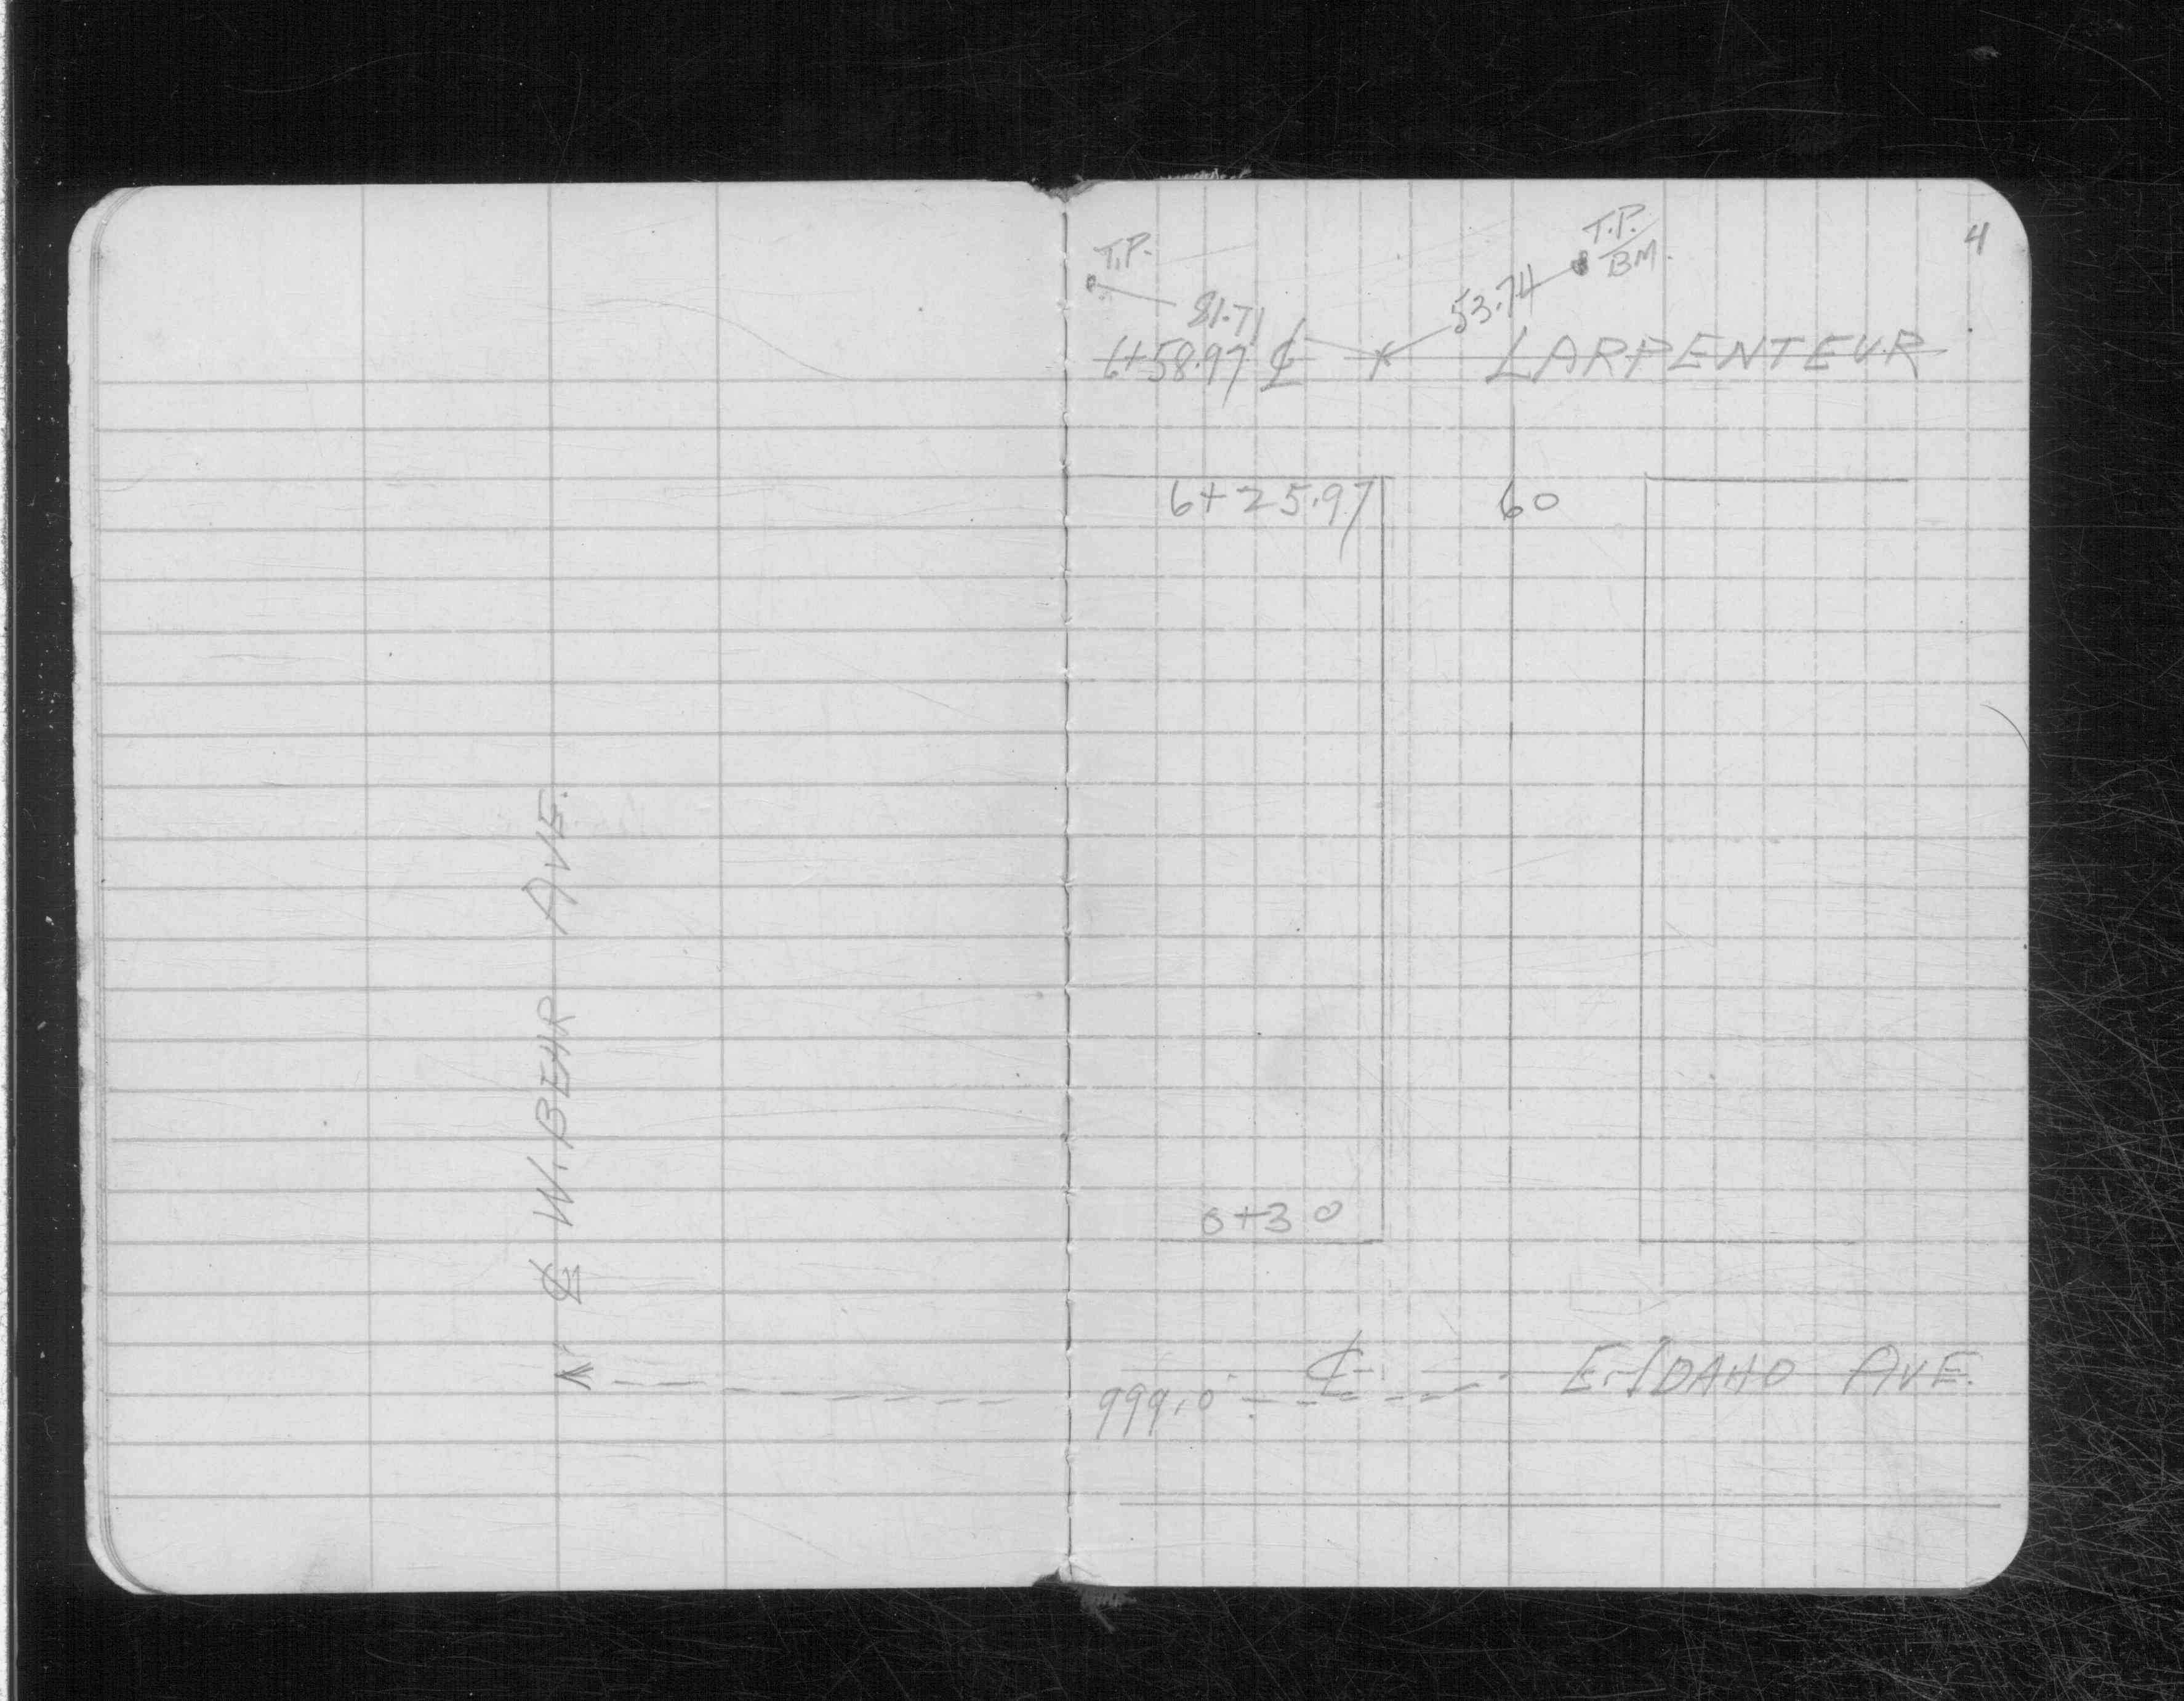 ℄ W. BEHR AVE.
4
T.P.
T.P.
BM.
81.71
53.74
6+58.97 ℄
LARPENTEUR
6+25.97
60
0+30
℄
E. IDAHO AVE.
999.0